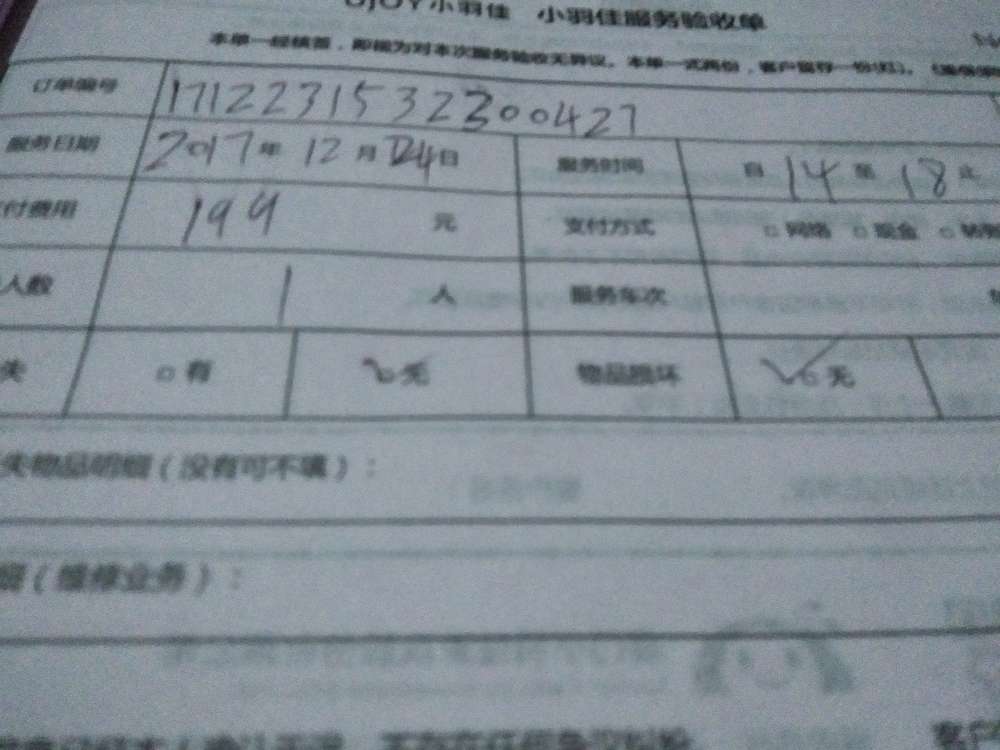 小羽佳 小羽佳服务验收单
本单一经核签，即视为对本次服务验收无异议。本单一式两份，客户留存一份
订单编号 17122315322300427
服务日期 2017年 12月 24日 服务时间 自 14 至 18 止
付费用 199 元 支付方式 □网络 □现金
人数 1 人 服务车次
失 □有 □无 物品损坏 □无
失物品明细（没有可不填）：
（维修业务）：